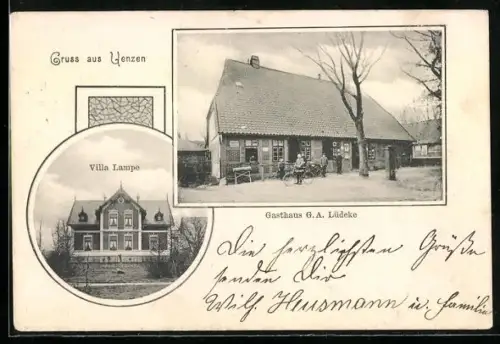 Gruss aus Uenzen
Villa Lampe
Gasthaus G. A. Lüdeke
Die herzlichsten Grüße
senden Dir
Wilh. Heusmann u. Familie